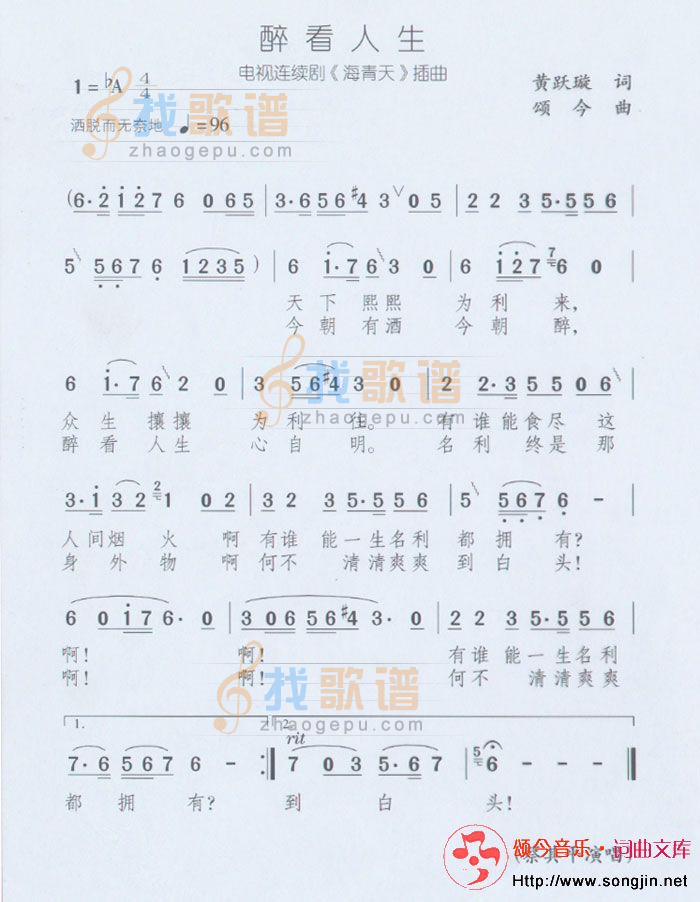 醉看人生
电视连续剧《海青天》插曲
1=♭A 4/4
黄跃璇 词
颂今 曲
洒脱而无奈地 ♩=96
找歌谱
zhaogepu.com
(6·2127 6 065 | 3·656#4 3 ∨05 | 2 2 3 5·556 |
5 567 6 1235) | 6 1·7 6 3 0 | 6 127 76 0 |
天下熙熙 为利来,
今朝有酒 今朝醉,
找歌谱
zhaogepu.com
6 1·7 6 2 0 | 3 56#4 3 0 | 2 2·3 5 5 0 6 |
众生攘攘 为利往。 有谁能食尽这
醉看人生 心自明。 名利终是那
3·1 32 21 02 | 3 2 3 5·556 | 5 567 6· - |
人间烟火 啊有谁能一生名利都拥有?
身外物 啊何不清清爽爽到白头!
6 0 17 6· 0 | 3 0656#4 3· 0 | 2 2 3 5·556 |
啊! 啊! 有谁能一生名利
啊! 啊! 何不清清爽爽
找歌谱
zhaogepu.com
1. 2.
rit
7·6 567 6 - :‖ 7 03 5672 | 56 - - ‖
都拥有? 到白头!
颂今音乐·词曲文库
www.songjin.net